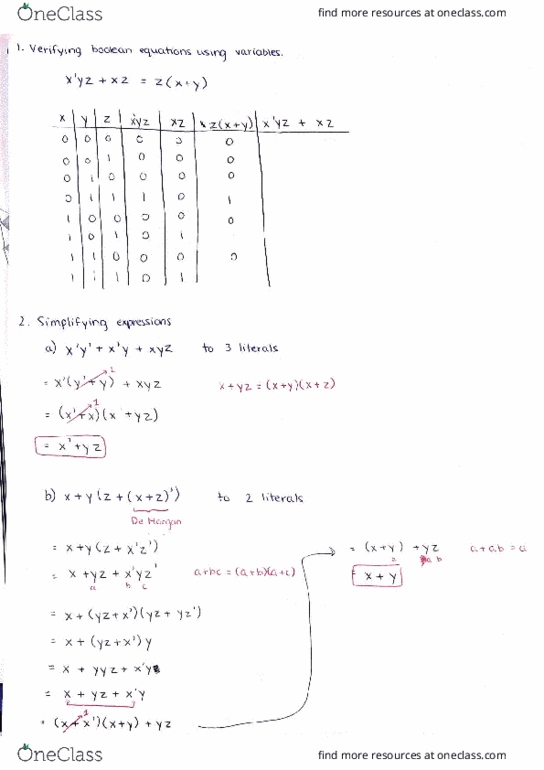 OneClass find more resources at oneclass.com
1. Verifying boolean equations using variables.
x'yz + xz = z(x+y)
x y z x'yz xz z(x+y) x'yz + xz
0 0 0 0 0 0
0 0 1 0 0 0
0 1 0 0 0 0
0 1 1 1 0 1
1 0 0 0 0 0
1 0 1 0 1
1 1 0 0 0 0
1 1 1 0 1
2. Simplifying expressions
a) x'y' + x'y + xyz to 3 literals
= x'(y'+y) + xyz x+yz = (x+y)(x+z)
1
= (x'+x)(x'+yz)
1
= x'+yz
b) x+y(z+(x+z)') to 2 literals
De Morgan
= x+y(z+x'z')
= x+yz+x'yz' a+bc = (a+b)(a+c)
a b c
= x+(yz+x')(yz+yz')
= x+(yz+x')y
= x + yyz + x'y
= x + yz + x'y
= (x+x')(x+y) + yz
1
= (x+y) + yz a+ab = a
a b
= x+y
OneClass find more resources at oneclass.com